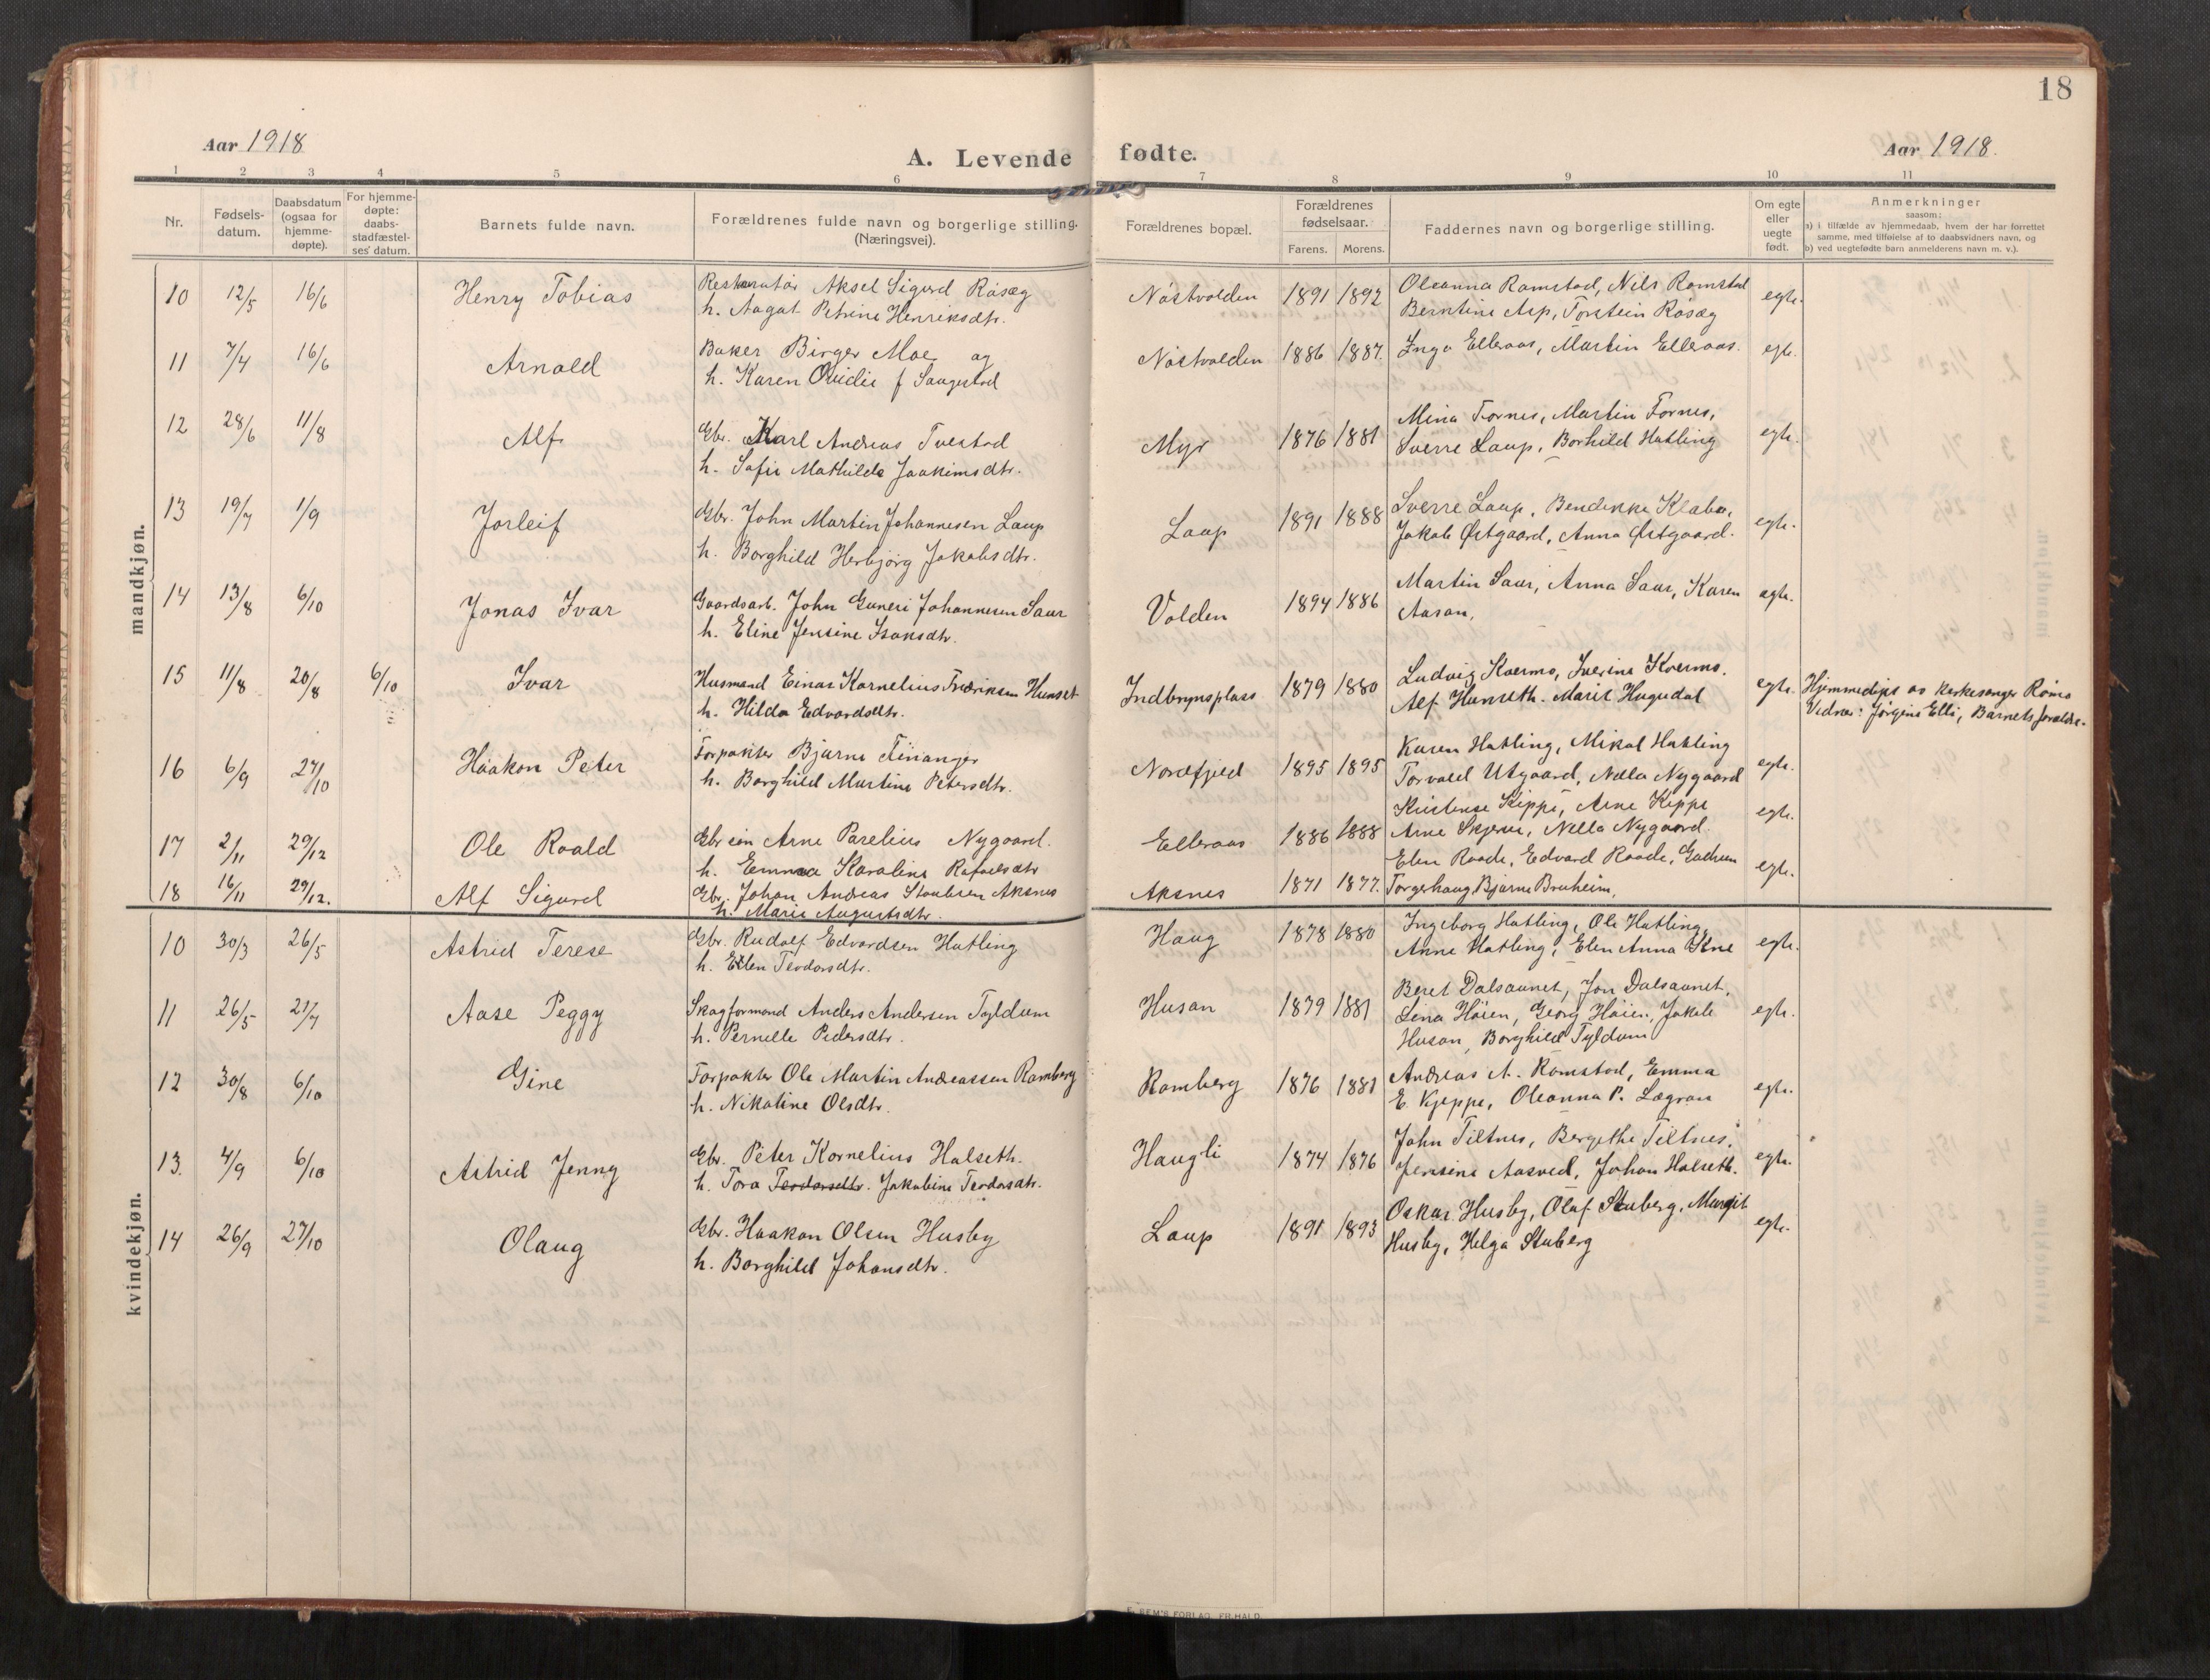 18
Aar 1918
A. Levende fødte.
Aar 1918.
1 2 3 4 5 6 7 8 9 10 11
Nr.
Fødsels-
datum.
Daabsdatum
(ogsaa for
hjemme-
døpte).
For hjemme-
døpte:
daabs-
stadfæstel-
ses' datum.
Barnets fulde navn.
Forældrenes fulde navn og borgerlige stilling.
(Næringsvei).
Forældrenes bopæl.
Forældrenes
fødselsaar.
Farens. Morens.
Faddernes navn og borgerlige stilling.
Om egte
eller
uegte
født.
Anmerkninger
saasom:
a) i tilfælde av hjemmedaab, hvem der har forrettet
samme, med tilføielse af to daabsvidners navn, og
b) ved uegtefødte barn anmelderens navn m. v.).
mandkjøn.
10 12/5 16/6 Henry Tobias
Restauratør Aksel Sigurd Råsæg
h. Aagat Petrine Henriksdtr.
Nøstvolden 1891 1892
Oleanna Ramstad, Nils Ramstad
Berntine Asp, Torstein Råsæg
egte.
11 7/4 16/6 Arnold
Baker Birger Moe og
h. Karen Ovidie f Saugestad
Nøstvolden 1886 1887.
Inga Elleraas, Martin Elleraas.
egte.
12 28/6 11/8 Alf
Gbr. Karl Andreas Tvestad
h. Sofie Mathilde Joakimsdtr.
Myr 1876 1881
Mina Fornes, Martin Fornes,
Sverre Laup, Borhild Hatling
egte.
13 19/7 1/9 Jorleif
Gbr. John Martin Johannesen Laup
h. Borghild Herbjørg Jakobsdtr.
Laup 1891 1888
Sverre Laup, Bendikke Klabo,
Jakob Østgaard, Anna Østgaard.
egte.
14 13/8 6/10 Jonas Ivar
Gaardsarb. John Guneri Johannesen Saur
h. Eline Jensine Isaksdtr.
Volden 1894 1886
Martin Saur, Anna Saur, Karen
Aasan,
egte.
15 11/8 20/8 6/10 Ivar
Husmand Einar Kornelius Fredriksen Hunset
h. Hilda Edvardsdtr.
Indbrynsplass 1879 1880
Ludvig Kvermo, Iverine Kvermo.
Alf Hunseth. Marit Hugudal
egte.
Hjemmedøpt av kirkesanger Rømo
Vidner: Jørgine Elli, Barnets forældre.
16 6/9 27/10 Haakon Peter
Forpakter Bjarne Finanger
h. Borghild Martine Petersdtr.
Nordfjeld 1895 1895
Karen Hatling, Mikal Hatling
Torvald Utgaard, Nella Nygaard
egte.
17 2/11 29/12 Ole Roald
Gbr søn Arne Parelius Nygaard.
h. Emma Karoline Rafaelsdtr
Elleraas 1886 1888
Kristense Kippe, Arne Kippe
Arne Skjerve, Nella Nygaard.
egte.
18 16/11 29/12. Alf Sigurd
Gbr. Johan Andreas Staalsen Aksnes
h. Marie Augustsdtr.
Aksnes 1871 1877.
Elen Raade, Edvard Raade, Gudrun
Torgerhaug, Bjarne Bruheim.
egte.
kvindekjøn.
10 30/3 26/5 Astrid Terese
Gbr. Rudolf Edvardsen Hatling
h. Ellen Teodorsdtr.
Haug 1878 1880
Ingeborg Hatling, Ole Hatling,
Anne Hatling, Elen Anna
egte.
11 26/5 21/7 Aase Peggy
Skogformand Anders Andersen Tyldum
h. Pernelle Pedersdtr.
Husan 1879 1881
Beret Dalsaunet, Jon Dalsaunet,
Lina Høien, Georg Høien, Jakob
Husan, Borghild Tyldum
egte.
12 30/8 6/10 Gine
Forpakter Ole Martin Andreassen Ramberg
h. Nikoline Olsdtr.
Ramberg 1876 1881
Andreas A. Ramstad, Emma
E. Kjeppe, Oleanna P. Lægran
egte.
13. 4/9 6/10 Astrid Jenny
Gbr. Peter Kornelius Halseth.
h. Tora Teodorsdtr. Jakobine Teodorsdtr.
Haugli 1874 1876
John Tiltnes, Bergithe Tiltnes,
Jensine Aasved, Johan Halseth.
egte.
14 26/9 27/10 Olaug
Gbr. Haakon Olsen Husby
h. Borghild Johansdtr.
Laup 1891 1893
Oskar Husby, Olaf Stuberg, Margit
Husby, Helga Stuberg
egte.
E. SEM'S FORLAG, FR.HALD.